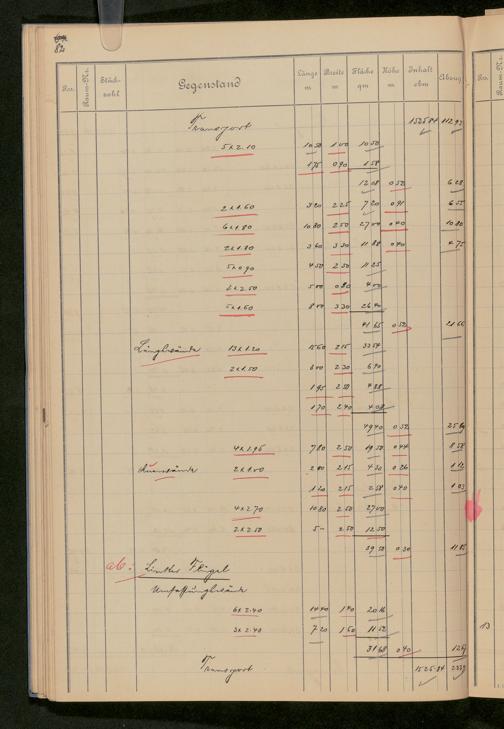 82
No. Raum-Nr. Stück-zahl Gegenstand Länge m Breite m Fläche qm Höhe m Inhalt cbm Abzug
Transport 1525 84 112 93
5 x 2.10 10 50 1 00 10 50
1 75 0 90 1 58
12 08 0 52 6 28
2 x 1.60 3 20 2 25 7 20 0 91 6 55
6 x 1.80 10 80 2 50 27 00 0 40 10 80
2 x 1.80 3 60 3 30 11 88 0 40 4 75
5 x 0.90 4 50 2 50 11 25
2 x 2.50 5 00 0 80 4 00
5 x 1.60 8 00 3 30 26 40
41 65 0 52 21 66
13 x 1.20 15 60 2 15 33 54
2 x 1.50 3 00 2 30 6 90
1 95 2 50 4 88
1 70 2 40 4 08
49 40 0 52 25 69
4 x 1.95 7 80 2 50 19 50 0 44 8 58
2 x 1.00 2 00 2 15 4 30 0 26 1 12
1 20 2 15 2 58 0 40 1 03
4 x 2.70 10 80 2 50 27 00
2 x 2.50 5 – 2 50 12 50
39 50 0 30 11 85
ab: Linker Flügel
Umfassungswände
6 x 2.40 14 40 1 40 20 16
3 x 2.40 7 20 1 60 11 52
31 68 0 40
Transport 1525 84
13